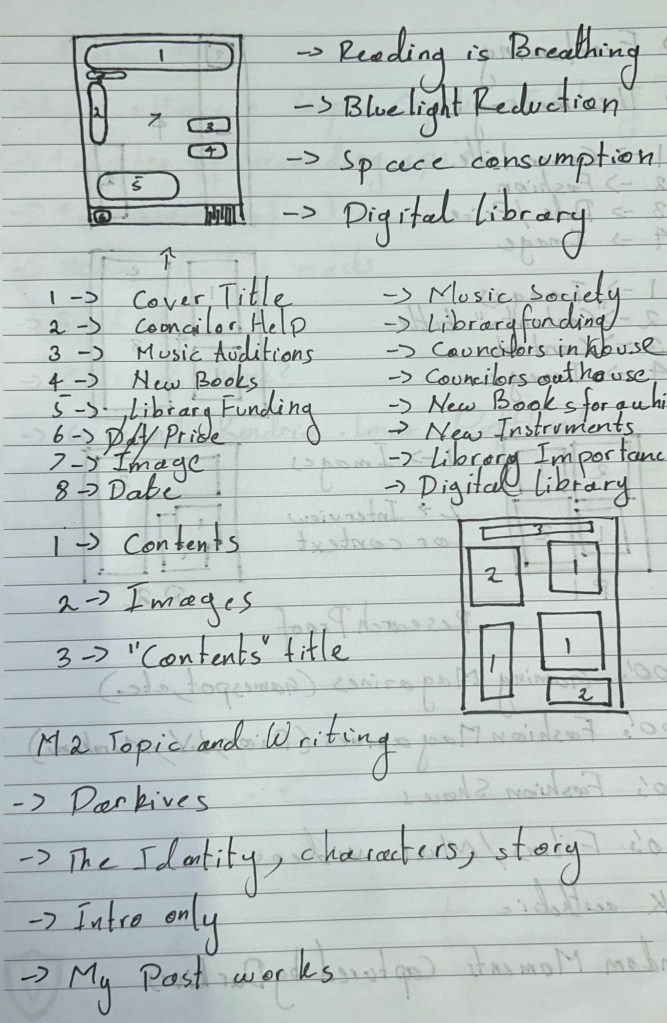 1
2
7
3
4
5
-> Reading is Breathing
-> Bluelight Reduction
-> Space consumption
-> Digital library
1 -> Cover Title
2 -> Councilor Help
3 -> Music Auditions
4 -> New Books
5 -> Library Funding
6 -> Price
7 -> Image
8 -> Date
-> Music Society
-> Library funding
-> Councilors inhouse
-> Councilors outhouse
-> New Books for
-> New Instruments
-> Library Importanc
-> Digital library
1 -> Contents
2 -> Images
3 -> "Contents" title
3
2
1
1
1
2
M2 Topic and Writing
-> Darkives
-> The Identity, characters, story
-> Intro only
-> My Past works